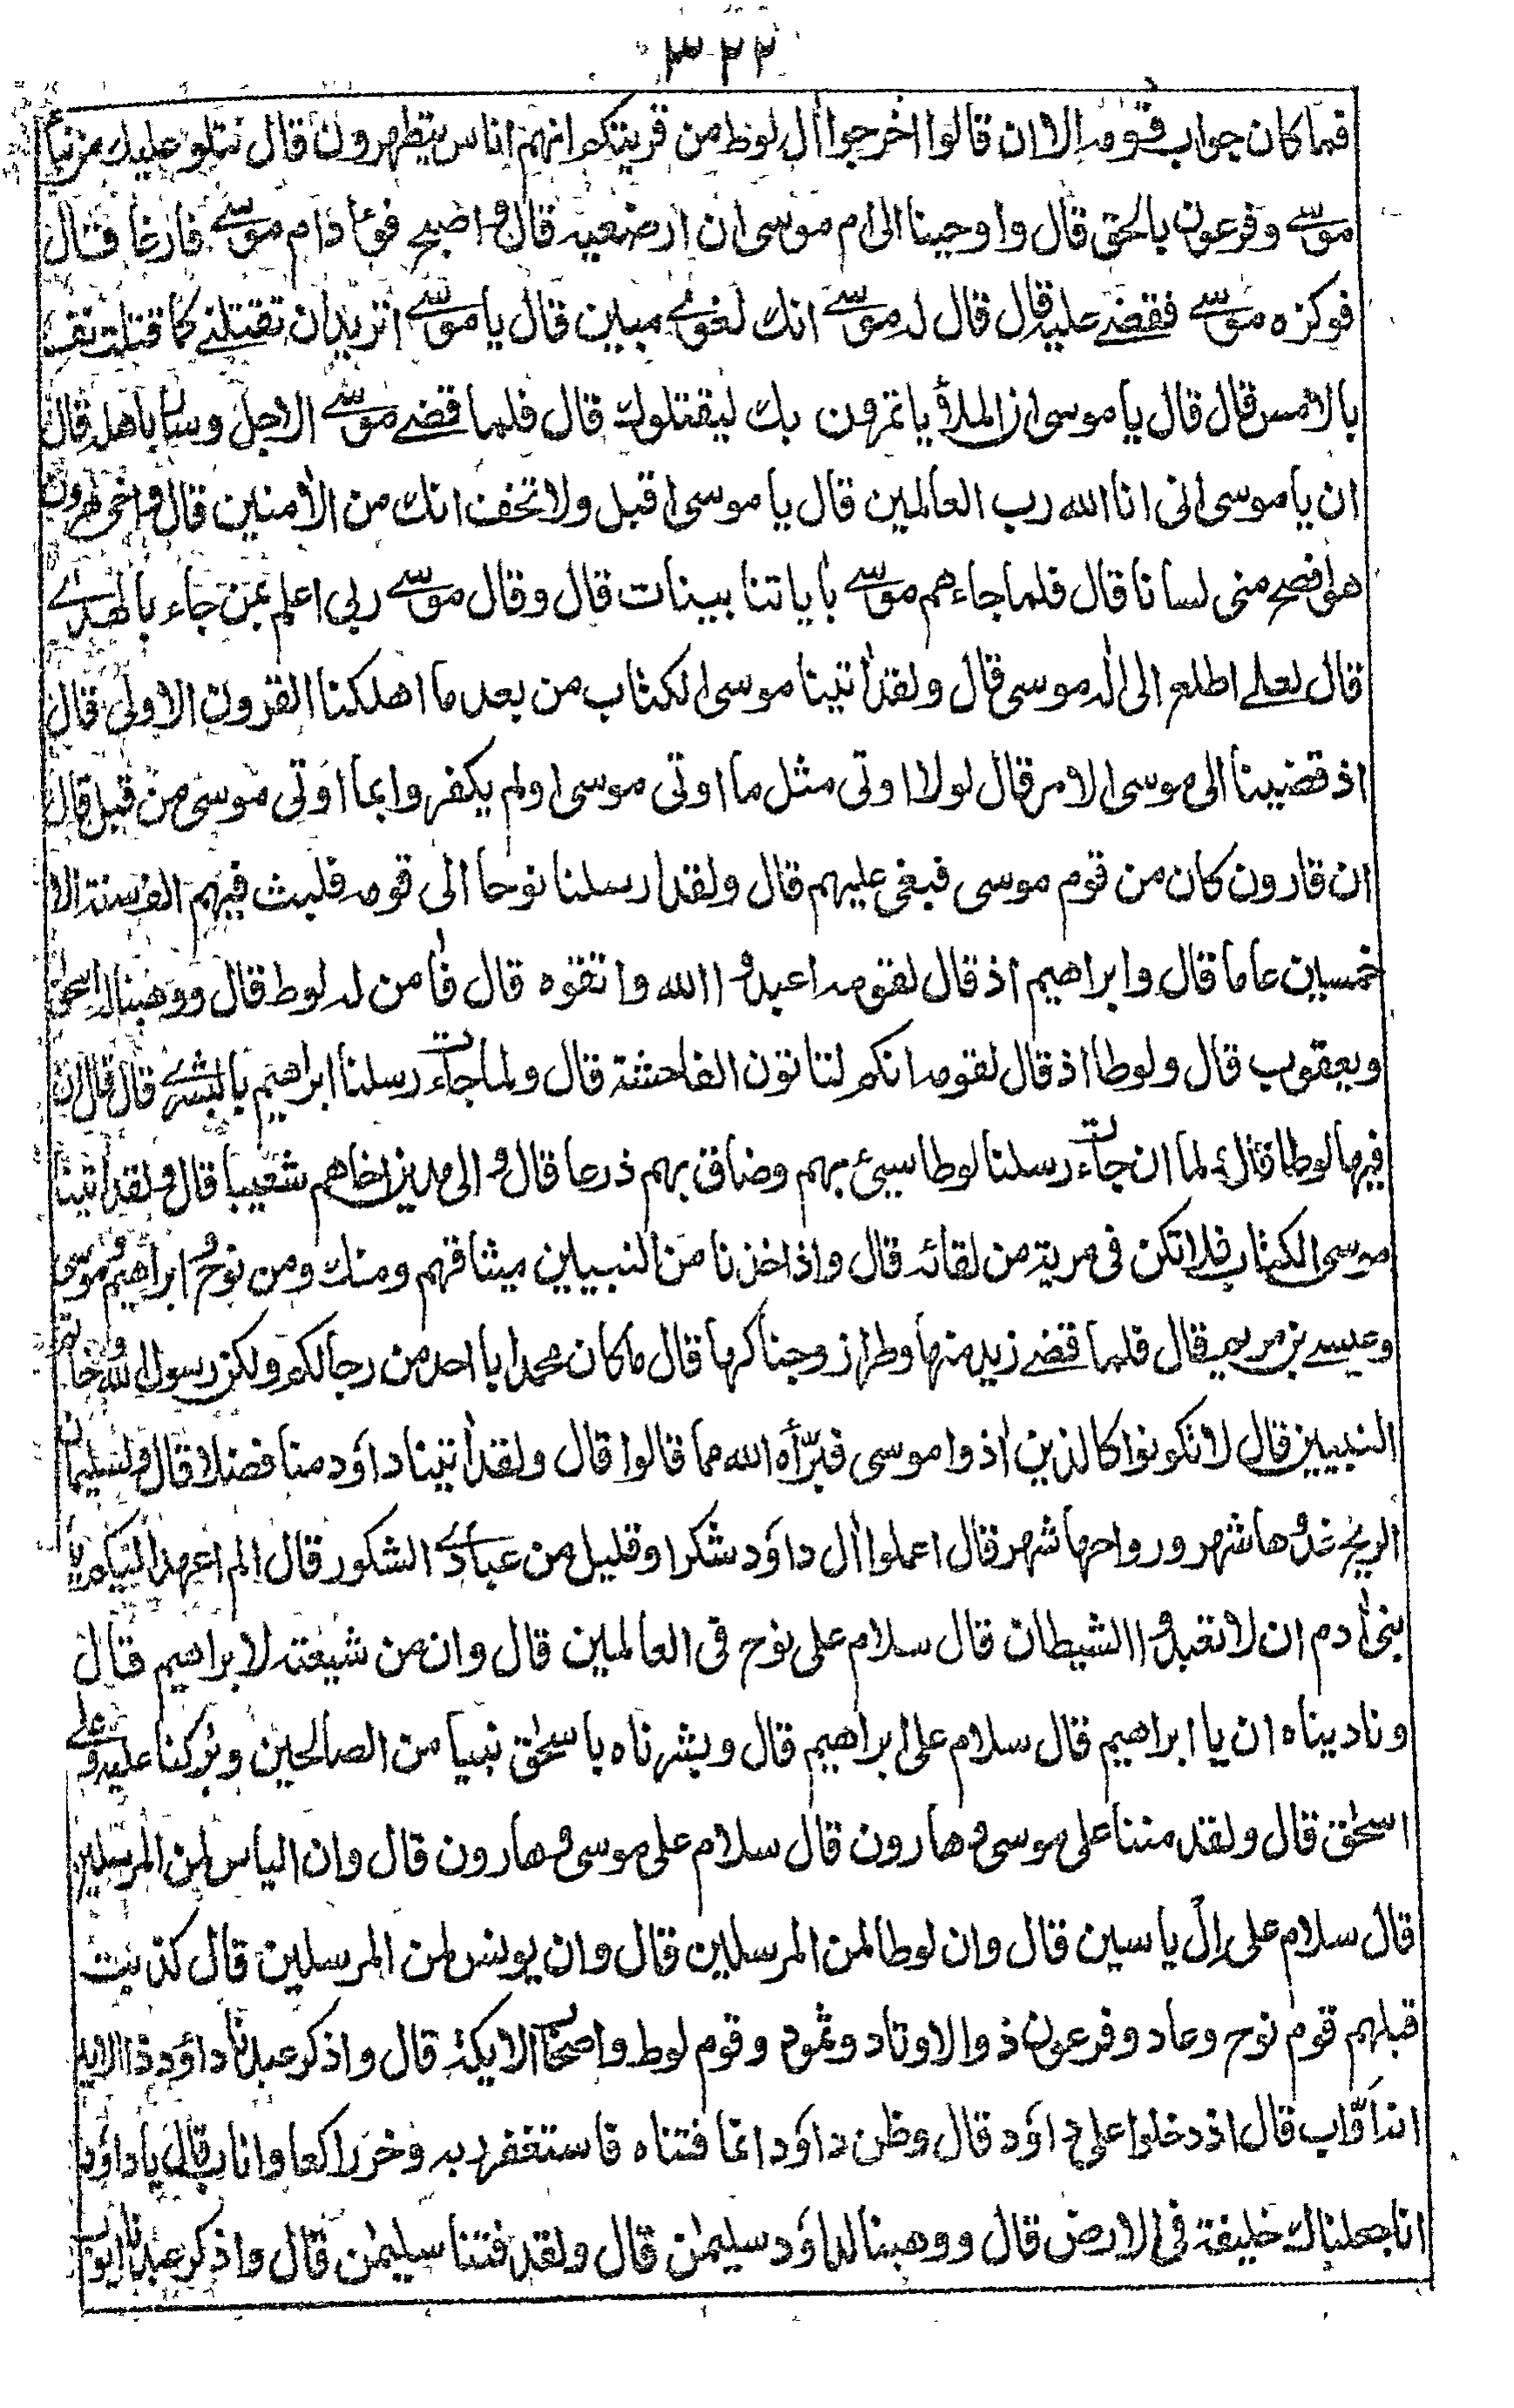 ٣٢٢
فما كان جواب قومه الا ان قالوا اخرجوا اٰل لوط من قريتكم انهم اناس يتطهرون قال نتلو عليك من نبأ
موسى وفرعون بالحق قال واوحينا الى ام موسى ان ارضعيه قال واصبح فؤاد ام موسى فارغا قال
فوكزه موسى فقضى عليه قال قال له موسى انك لغوى مبين قال يا موسى اتريد ان تقتلنى كما قتلت نفسا
بالامس قال قال يا موسى ان الملأ ياتمرون بك ليقتلوك قال فلما قضى موسى الاجل وسار باهله قال
ان يا موسى انى انا الله رب العالمين قال يا موسى اقبل ولا تخف انك من الاٰمنين قال واخى هرون
هو افصح منى لسانا قال فلما جاءهم موسى باٰياتنا بينات قال وقال موسى ربى اعلم بمن جاء بالهدى
قال لعلى اطلع الى اله موسى قال ولقد اٰتينا موسى الكتاب من بعد ما اهلكنا القرون الاولى قال
اذ قضينا الى موسى الامر قال لولا اوتى مثل ما اوتى موسى اولم يكفروا بما اوتى موسى من قبل قال
ان قارون كان من قوم موسى فبغى عليهم قال ولقد ارسلنا نوحا الى قومه فلبث فيهم الف سنة الا
خمسين عاما قال وابراهيم اذ قال لقومه اعبدوا الله واتقوه قال فاٰمن له لوط قال ووهبنا له اسحٰق
ويعقوب قال ولوطا اذ قال لقومه انكم لتاتون الفاحشة قال ولما جاءت رسلنا ابراهيم بالبشرى قال قال ان
فيها لوطا قال ولما ان جاءت رسلنا لوطا سيئ بهم وضاق بهم ذرعا قال والى مدين اخاهم شعيبا قال ولقد اٰتينا
موسى الكتاب فلا تكن فى مرية من لقائه قال واذ اخذنا من النبيين ميثاقهم ومنك ومن نوح وابراهيم وموسى
وعيسى بن مريم قال فلما قضى زيد منها وطرا زوجناكها قال ما كان محمد ابا احد من رجالكم ولكن رسول الله وخاتم
النبيين قال لا تكونوا كالذين اٰذوا موسى فبرّأه الله مما قالوا قال ولقد اٰتينا داؤد منا فضلا قال ولسليمان
الريح غدوها شهر ورواحها شهر قال اعملوا اٰل داؤد شكرا وقليل من عبادى الشكور قال الم اعهد اليكم يا
بنى اٰدم ان لا تعبدوا الشيطان قال سلام على نوح فى العالمين قال وان من شيعته لابراهيم قال
وناديناه ان يا ابراهيم قال سلام على ابراهيم قال وبشرناه باسحٰق نبيا من الصالحين وبٰركنا عليه وعلى
اسحٰق قال ولقد مننا على موسى وهارون قال سلام على موسى وهارون قال وان الياس لمن المرسلين
قال سلام على اٰل ياسين قال وان لوطا لمن المرسلين قال وان يونس لمن المرسلين قال كذبت
قبلهم قوم نوح وعاد وفرعون ذوالاوتاد وثمود وقوم لوط واصحٰب الايكة قال واذكر عبدنا داؤد ذا الايد
انه اوّاب قال اذ دخلوا على داؤد قال وظن داؤد انما فتناه فاستغفر ربه وخر راكعا واناب قال يا داؤد
انا جعلناك خليفة فى الارض قال ووهبنا لداؤد سليمٰن قال ولقد فتنا سليمٰن قال واذكر عبدنا ايوب